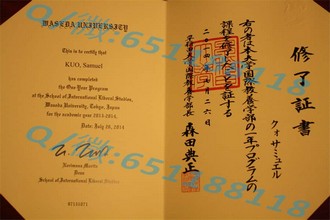 WASEDA UNIVERSITY
This is to certify that
KUO, Samuel
has completed
the One Year Program
at the School of International Liberal Studies,
Waseda University, Tokyo, Japan
for the academic year 2013-2014.
Date: July 26, 2014
Norimasa Morita
Dean
School of International Liberal Studies
修了証書
クオサミュエル
右の者は本大学国際教養学部の一年プログラムの
課程を修了したことを証する
早稲田大学国際教養学部長 森田典正
Q/微:651388118